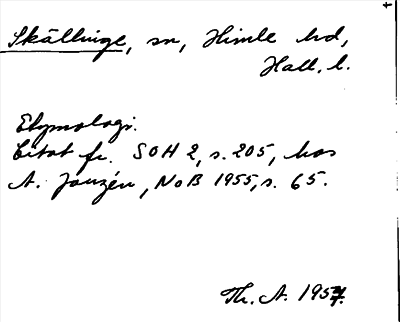 Skällinge, sn, Himle hd,
Hall. l.
Etymologi.
Citat fr. SOH 2, s. 205, hos
A. Janzén, NoB 1955, s. 65.
Th. A. 1957.